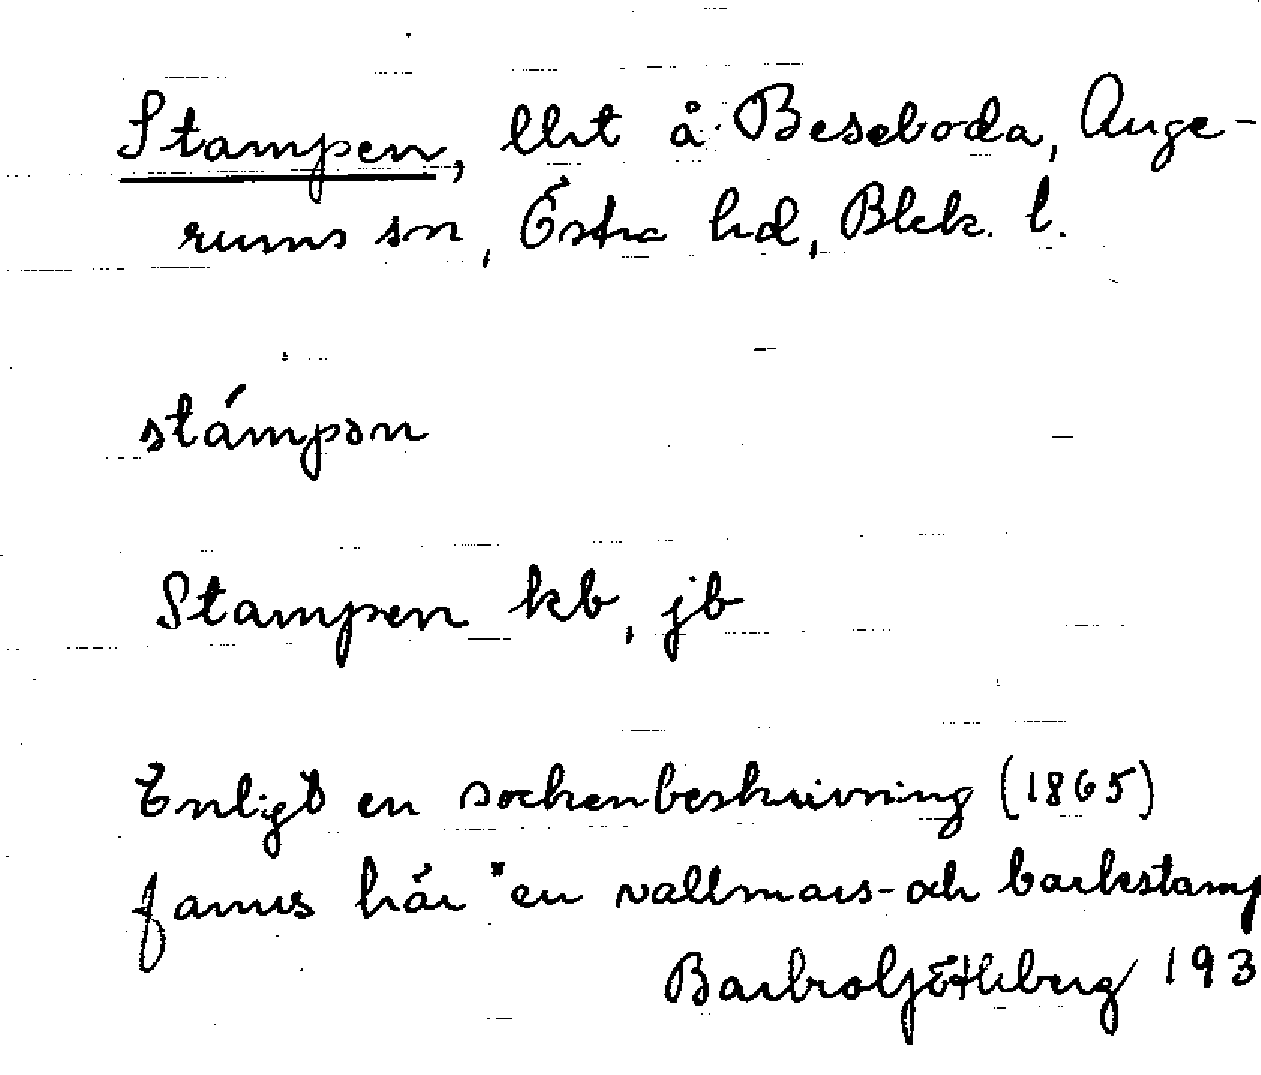 Stampen, llht å Beseboda, Auge-
rums sn, Östra hd, Blek. l.
stámpən
Stampen kb, jb
Enligt en sockenbeskrivning (1865)
fanns här "en vallmars- och barkstamp
Barbro Götheberg 193